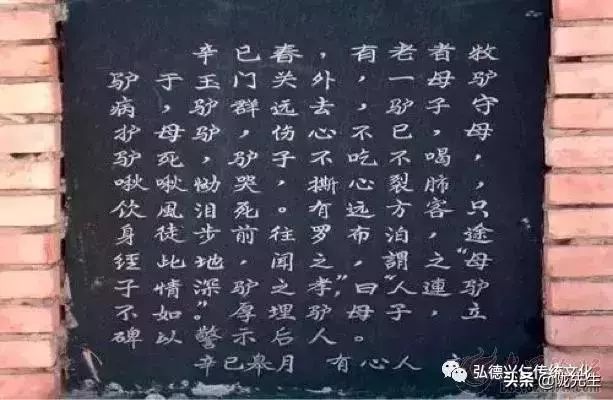 辛已春，有老者牧
驴于王门关外，一母驴
病，驴群远去，驴子守
护母驴，伤心不已，母
驴死，驴子不吃不喝，
啾啾恸哭，撕心裂肺，
饮風泪死。有远方客只
身徒步前往罗布泊，途
经此地，闻之，謂之“母
子情深”。驴之孝，曰“人連驴
不如”，厚埋驴母子，立
碑以警示后人。
辛已皋月 有心人
弘德兴仁传统文化
头条@陇先生